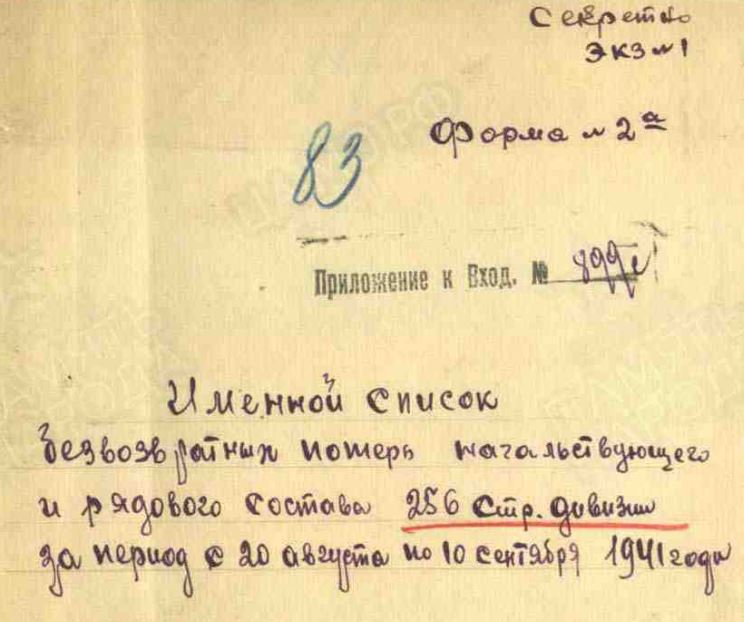 Секретно
экз №1
Форма № 2а
83
Приложение к Вход. № 899с
Именной список
безвозвратных потерь начальствующего
и рядового состава 256 стр. дивизии
за период с 20 августа по 10 сентября 1941 года